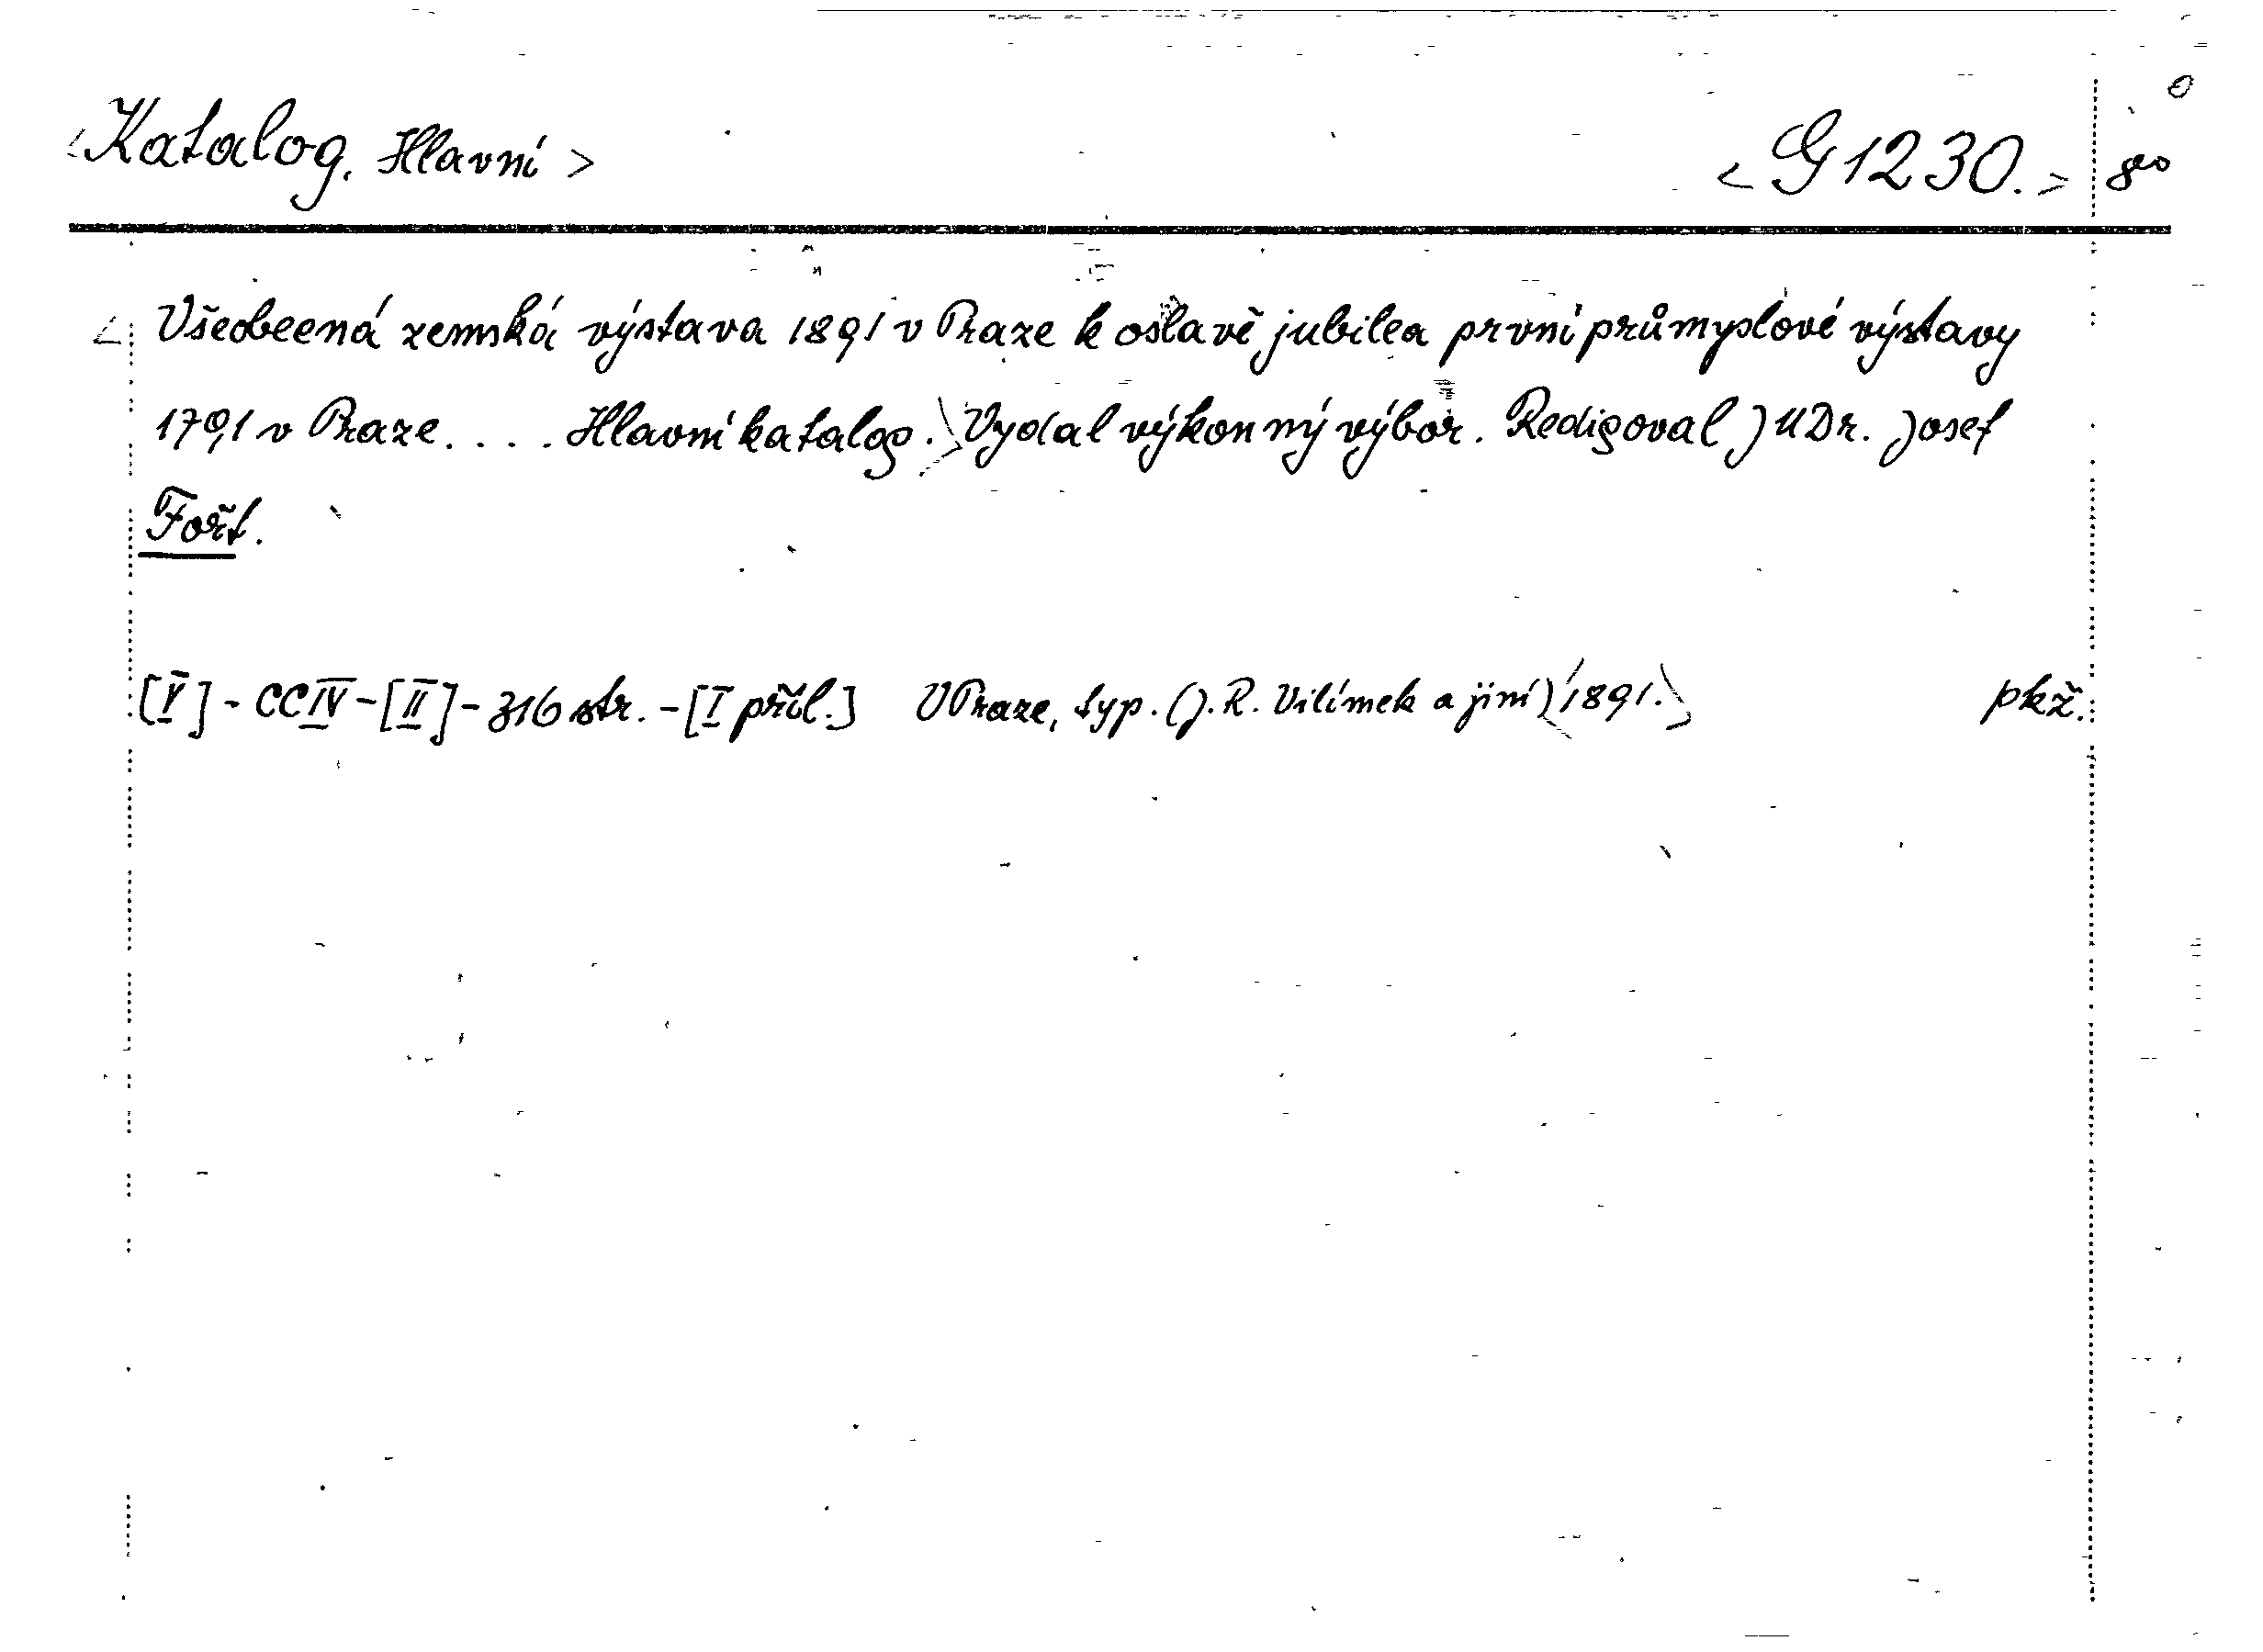 <Katalog. Hlavní> <G 1230.> 8vo
<Všeobecná zemská výstava 1891 v Praze k oslavě jubilea první průmyslové výstavy
1791 v Praze. . . . Hlavní katalog.> Vydal výkonný výbor. Redigoval JUDr. Josef
Fořt.
[V] - CCIV - [II] - 316 str. - [I příl.] V Praze, typ. (J. R. Vilímek a jiní) <1891.> pkž.